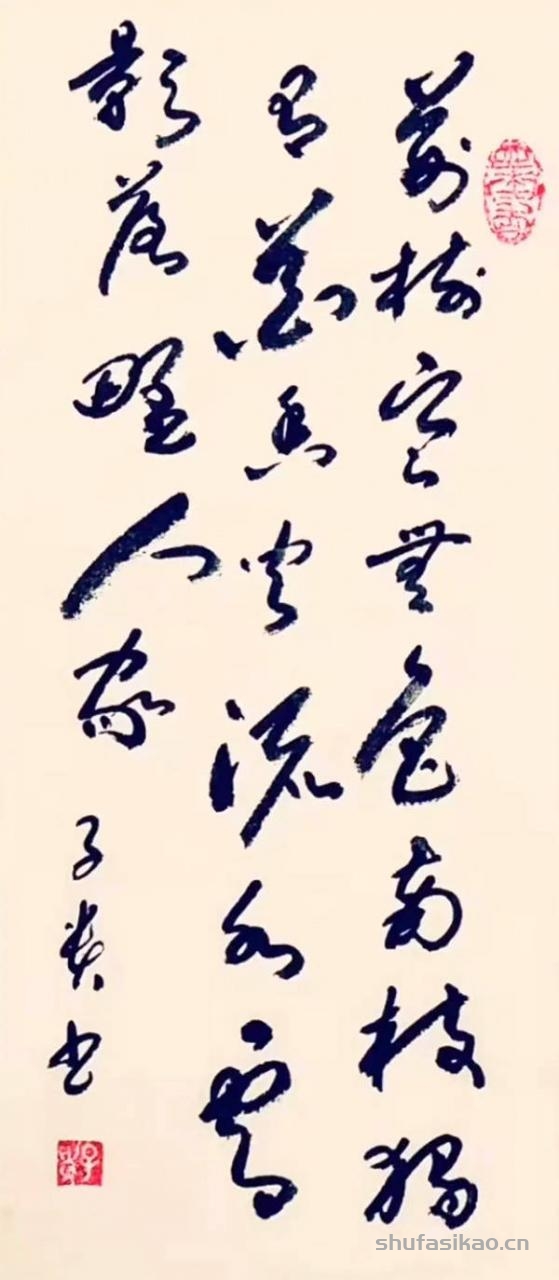 萬樹寒無色南枝獨
有花香聞流水處
影落野人家
子貴書
shufasikao.cn